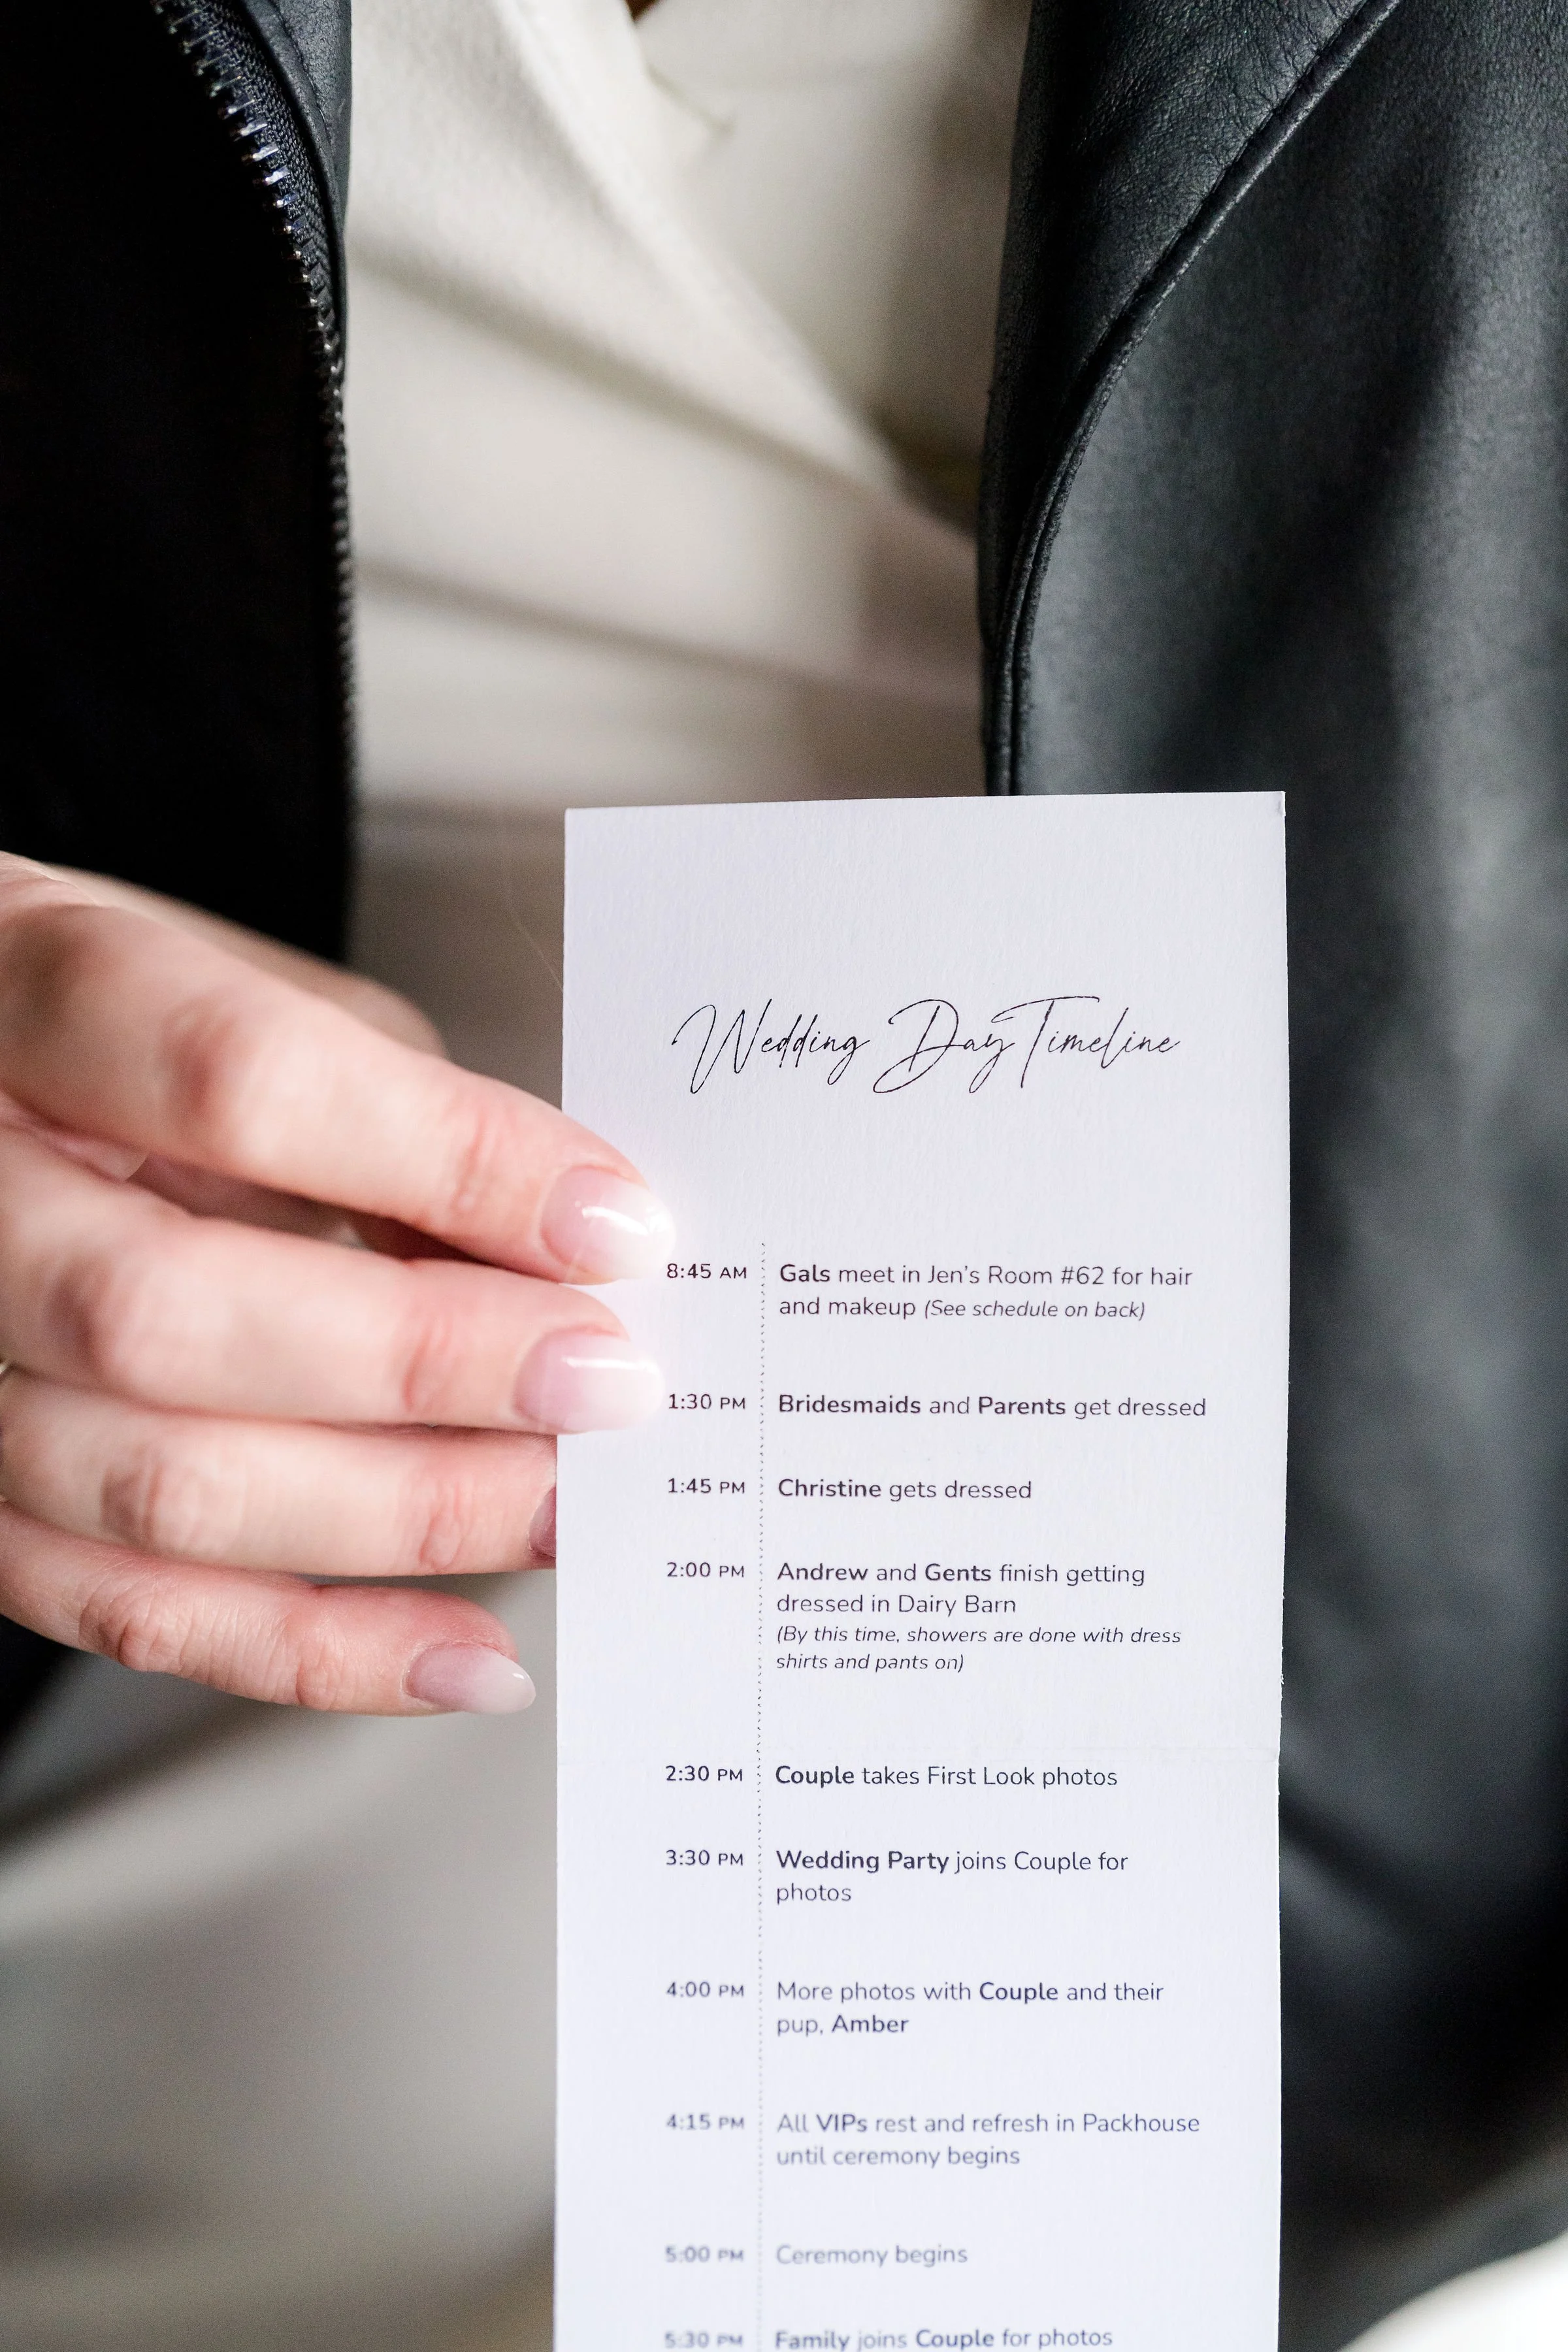 Wedding Day Timeline
8:45 AM Gals meet in Jen's Room #62 for hair
and makeup (See schedule on back)
1:30 PM Bridesmaids and Parents get dressed
1:45 PM Christine gets dressed
2:00 PM Andrew and Gents finish getting
dressed in Dairy Barn
(By this time, showers are done with dress
shirts and pants on)
2:30 PM Couple takes First Look photos
3:30 PM Wedding Party joins Couple for
photos
4:00 PM More photos with Couple and their
pup, Amber
4:15 PM All VIPs rest and refresh in Packhouse
until ceremony begins
5:00 PM Ceremony begins
5:30 PM Family joins Couple for photos